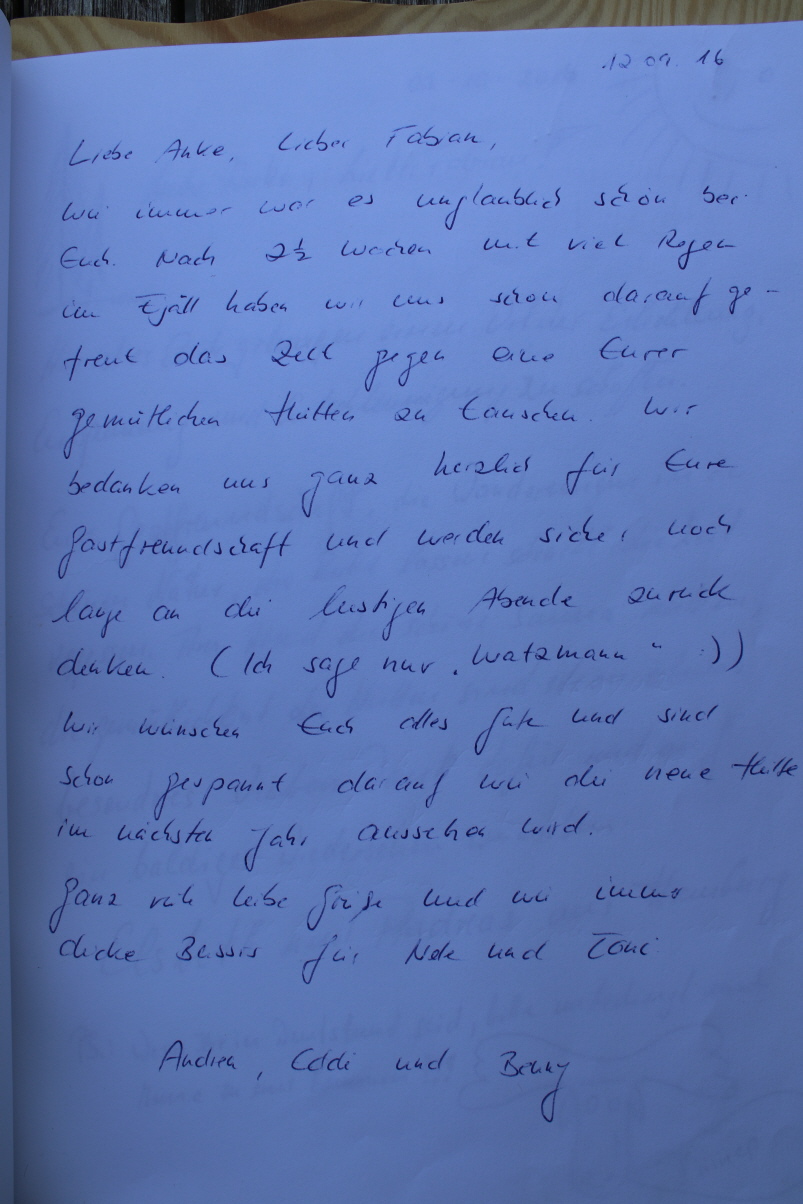 12 09. 16
Liebe Anke, Lieber Fabian,
wie immer war es unglaublich schön bei
Euch. Nach 2½ Wochen mit viel Regen
im Fjäll haben wir uns schon darauf ge-
freut das Zelt gegen eine Eurer
gemütlichen Hütten zu tauschen. Wir
bedanken uns ganz herzlich für Eure
Gastfreundschaft und werden sicher noch
lange an die lustigen Abende zurück
denken. (Ich sage nur „Watzmann" :))
Wir wünschen Euch alles Gute und sind
schon gespannt darauf wie die neue Hütte
im nächsten Jahr aussehen wird.
Ganz viele liebe Grüße und wie immer
dicke Bussis für Nele und Toni
Andrea, Eddi und Benny